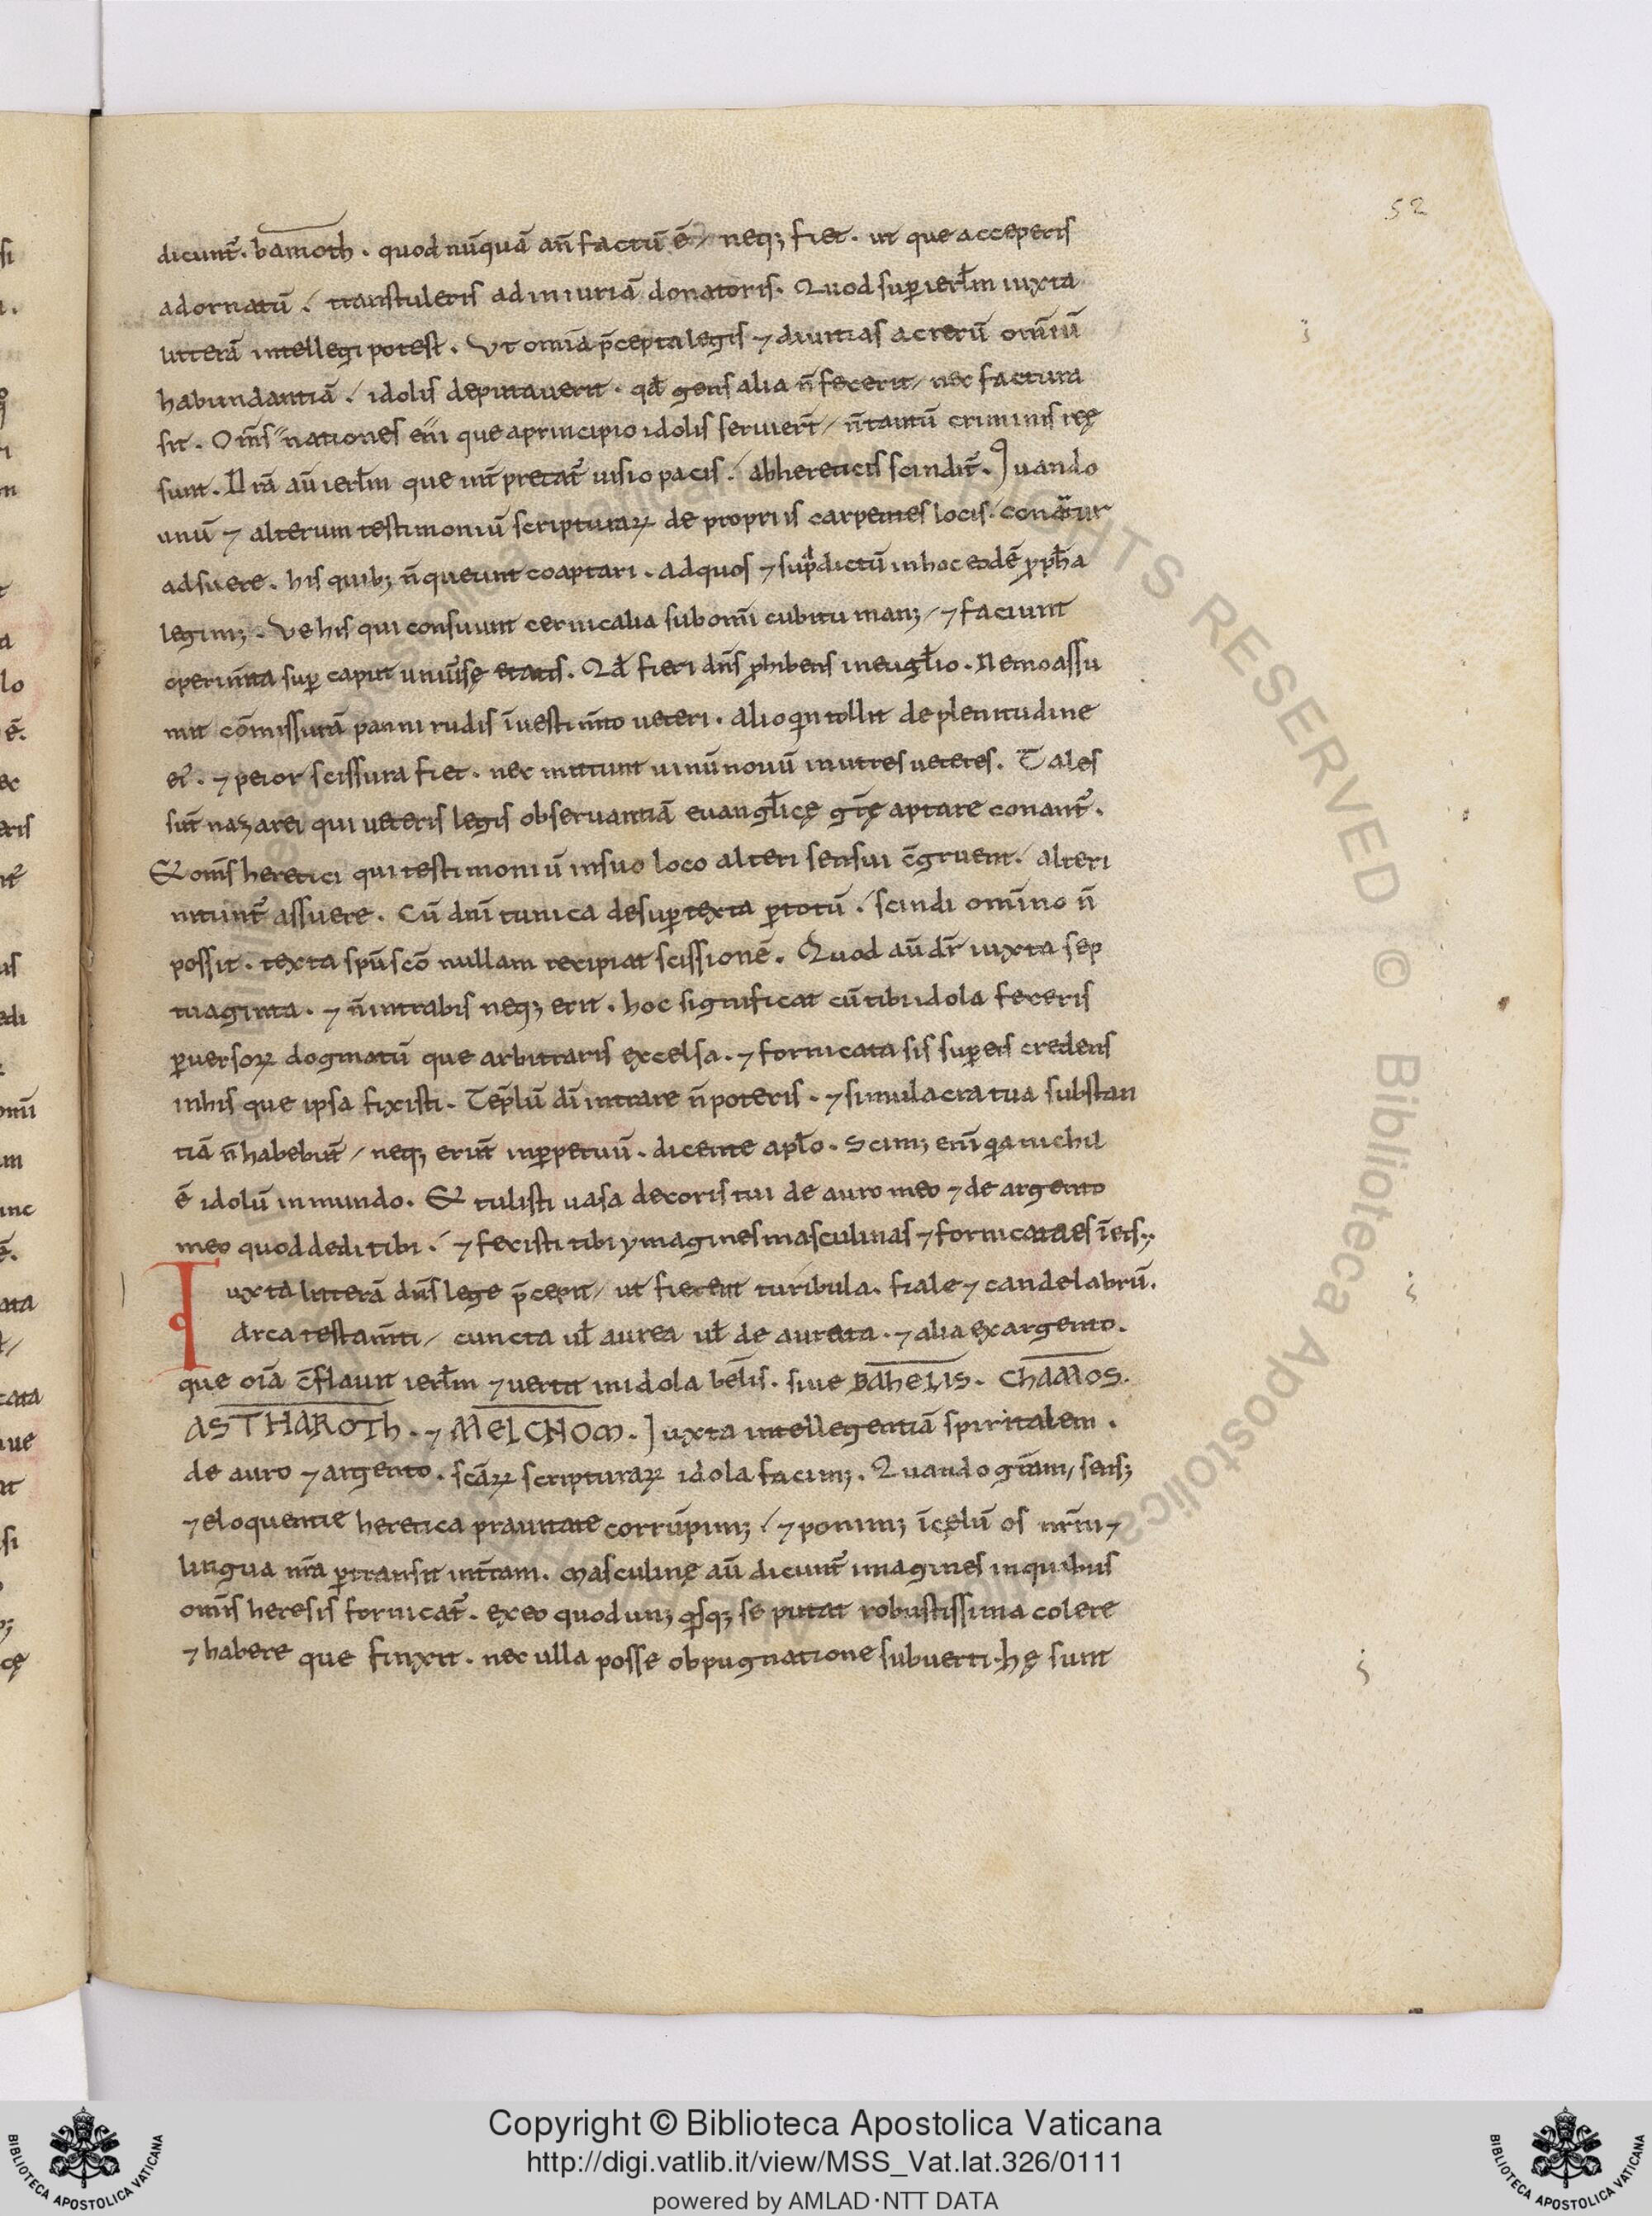 52
dicunt̄. bamoth. quod nūquā an̄ factū ē / neq; fiet. ut que acceperis
adornatū / transtuleris ad iniuriā donatoris. Quod sup ierłm iuxta
litterā intellegi potest. Vt omīa p̄cepta legis ⁊ diuitias ac rerū omīū
habundantiā / idolis deputauerit. qđ gens alia n̄ fecerit / nec factura
sit. Om̄s nationes eni que aprincipio idolis seruiert̄ / n̄ tantū criminis reę
sunt. Nrā aū ierłm que int̄pretat̄ uisio pacis / abhereticis scindit̄. Quando
unū ⁊ alterum testimoniū scripturaꝝ de propriis carpentes locis / conātur
adsuere. his quib; n̄ queunt coaptari. adquos ⁊ supͣdictū inhoc eodē ꝓpħa
legim;. Ve his qui consuunt ceruicalia sub omi cubitu man; / ⁊ faciunt
operim̄ta sup caput uniu̅sę etatis. Qđ fieri dn̄s ꝓhibens ineuglio. Nemo assu
mit cōmissurā panni rudis īuestim̄to ueteri. alioqin tollit de plenitudine
ei. ⁊ peior scissura fiet. nec mittunt uinū nouū in utres ueteres. Tales
sūt nazarei qui ueteris legis obseruantiā euanglicę grę aptare conant̄.
Et om̄s heretici qui testimoniū insuo loco alteri sensui c̄gruent / alteri
nitunt̄ assuere. Cū dn̄i tunica desuꝑtexta ꝑtotū / scindi omīno n̄
possit. texta spūscō nullam recipiat scissionē. Quod aū dr̄ iuxta sep
tuaginta. ⁊ n̄ intrabis neq; erit. hoc significat cū tibi idola feceris
ꝑuersoꝝ dogmatū que arbitraris excelsa. ⁊ fornicata sis suꝑeis credens
inhis que ipsa fixisti. Teplū dī intrare n̄ poteris. ⁊ simulacra tua substan
tiā n̄ habebūt / neq; erūt inꝑpetuū. dicente apło. Scim; enī qͥa nichil
ē idolū in mundo. Et tulisti uasa decoris tui de auro meo ⁊ de argento
meo quod dedi tibi / ⁊ fecisti tibi ymagines masculinas ⁊ fornicata es īeis;
Iuxta litterā dn̄s lege p̄cepit / ut fierent turibula. fiale ⁊ candelabrū.
Arca testam̄ti / cuncta uł aurea uł de aurata. ⁊ alia ex argento.
que oīa c̄flauit ierłm ⁊ uertit inidola belis. siue BAhELIS. ChAMOS.
ASTHAROTh. ⁊ MELCHOM. Iuxta intellegentiā spiritalem.
de auro ⁊ argento. scāꝝ scripturaꝝ idola facim;. Quando gram, sens;
⁊ eloquentie heretica prauitate corrūpim; / ⁊ ponim; īcęlū os nrm ⁊
lingua nra ꝑtransit int̄ram. Masculinę aū dicunt̄ imagines inquibus
om̄is heresis fornicat̄. exeo quod un; qͥsq; se putat robustissima colere
⁊ habere que finxit. nec ulla posse obpugnatione subuerti. hę sunt
Copyright © Biblioteca Apostolica Vaticana
http://digi.vatlib.it/view/MSS_Vat.lat.326/0111
powered by AMLAD·NTT DATA